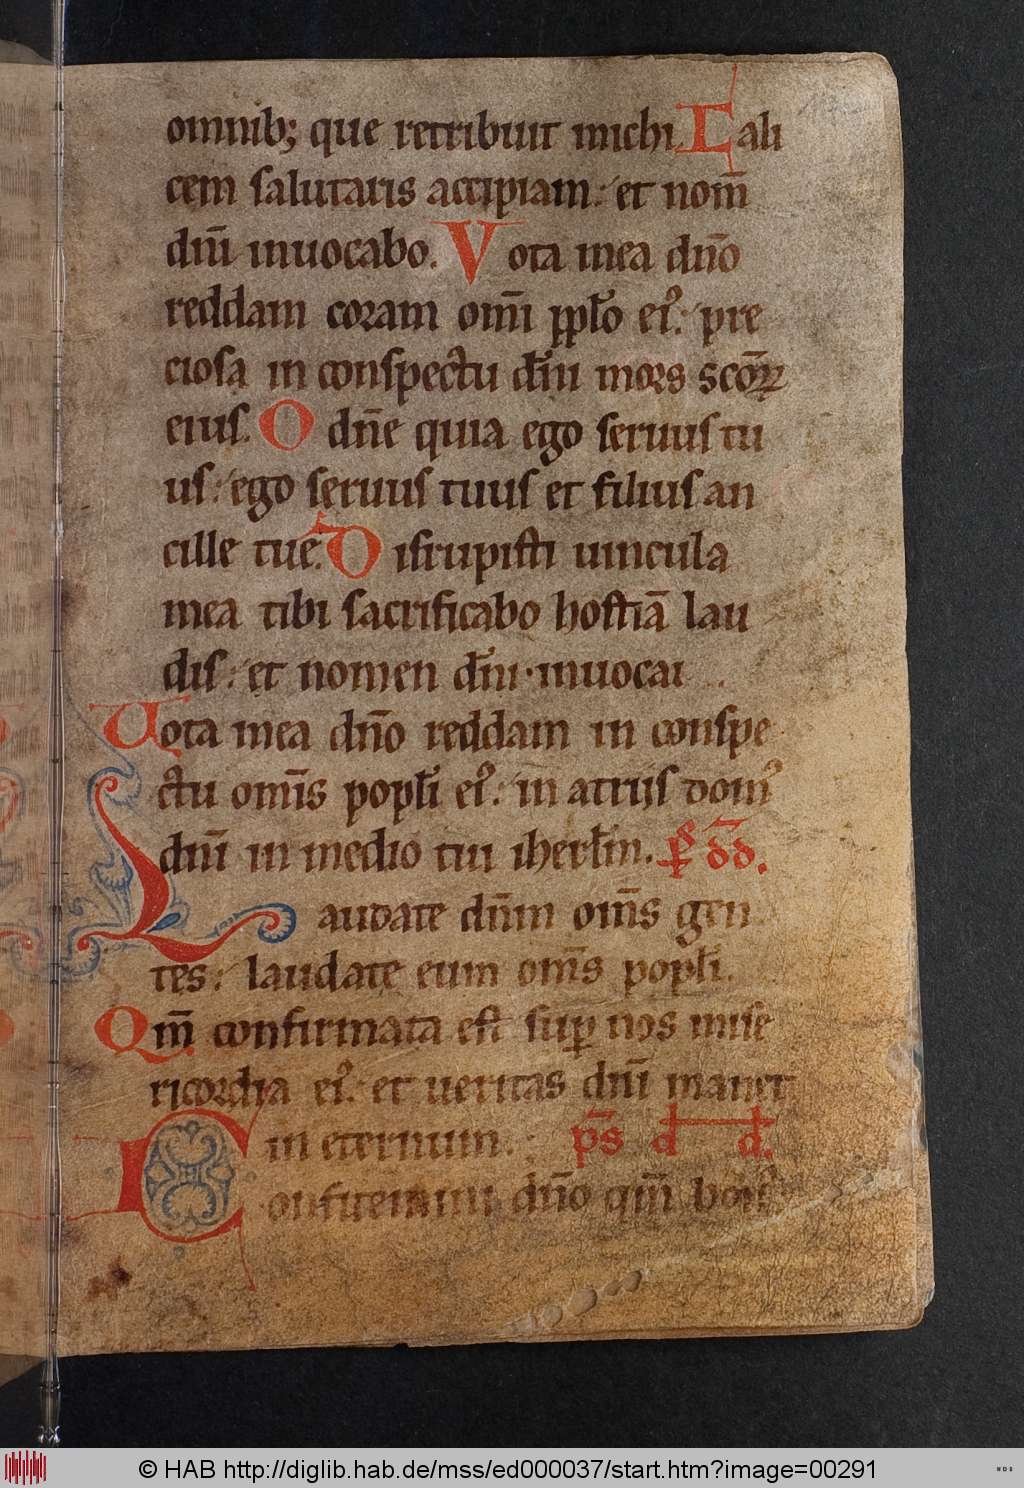 omnib; que retribuit michi. Cali
cem salutaris accipiam: et nom̄
dn̄i inuocabo. Vota mea dn̄o
reddam coram om̄i ppl̄o ei᷒: pre
ciosa in conspectu dn̄i mors scōꝝ
eius. O dn̄e quia ego seruus tu
us: ego seruus tuus et filius an
cille tue. Disrupisti uincula
mea tibi sacrificabo hostiā lau
dis: et nomen dn̄i inuoca
Vota mea dn̄o reddam in conspe
ctu om̄is popl̄i ei᷒: in atriis dom᷒
dn̄i in medio tui iherl̄m. p̄s dd̄.
Laudate dn̄m om̄s gen
tes: laudate eum om̄s popl̄i.
Qm̄ confirmata est suꝑ nos mise
ricordia ei᷒: et ueritas dn̄i manet
in eternum. p̄s d̄ d̄.
Confitemini dn̄o qm̄ bon᷒
© HAB http://diglib.hab.de/mss/ed000037/start.htm?image=00291